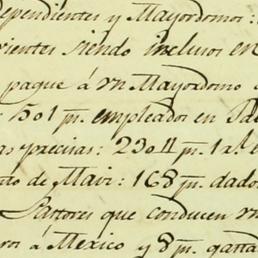 dependientes y Mayordomos:
rientes siendo inclusos en
pague á vn Mayordomo
501 ps. empleados en
as precisas: 2304 ps. 1 al
to de Maiz: 168 ps. dados
Pastores que conducen vn
ros á Mexico y 8 ps. gasta